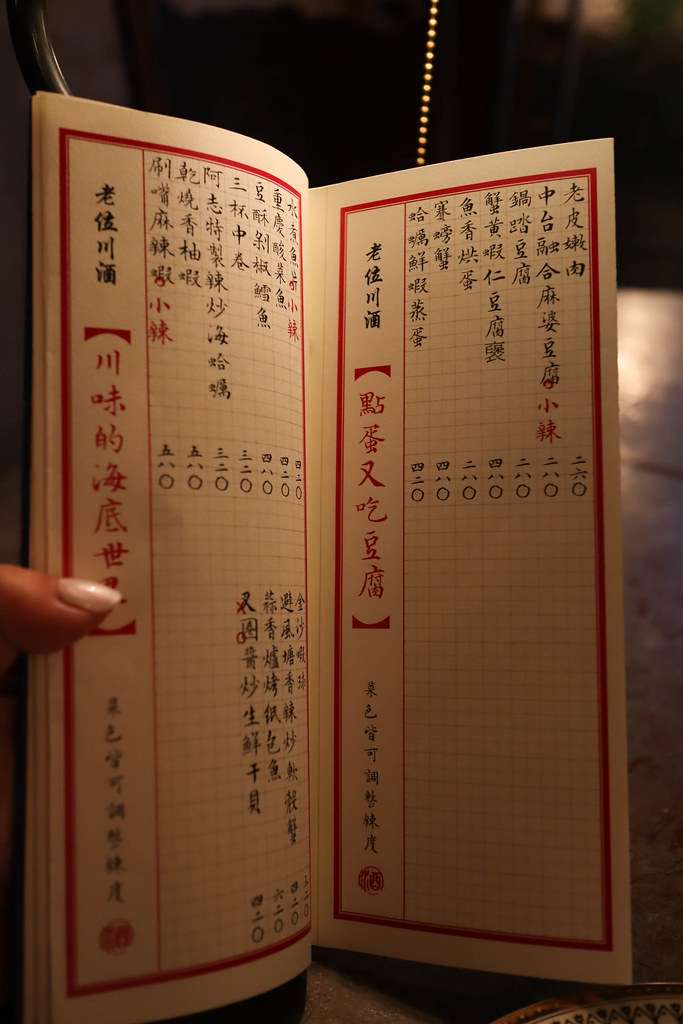 老皮嫩肉 二六〇
中台融合麻婆豆腐 小辣 二八〇
鍋踏豆腐 二六〇
蟹黃蝦仁豆腐褒 四八〇
魚香烘蛋 二八〇
賽螃蟹 四八〇
蛤蠣鮮蝦蒸蛋 四二〇
老位川酒
【點蛋又吃豆腐】
菜色皆可調整辣度
水煮魚 小辣 四二〇
重慶酸菜魚 四二〇
豆酥剁椒鱈魚 四八〇
三杯中卷 三二〇
阿志特製辣炒海蛤蠣 三二〇
乾燒香柚蝦 五八〇
刷嘴麻辣蝦 小辣 五八〇
金沙蝦球 三二〇
避風塘香辣炒軟殼蟹 四二〇
蒜香爐烤纸包魚 六二〇
叉圈醬炒生鮮干貝 四二〇
老位川酒
【川味的海底世界】
菜色皆可調整辣度